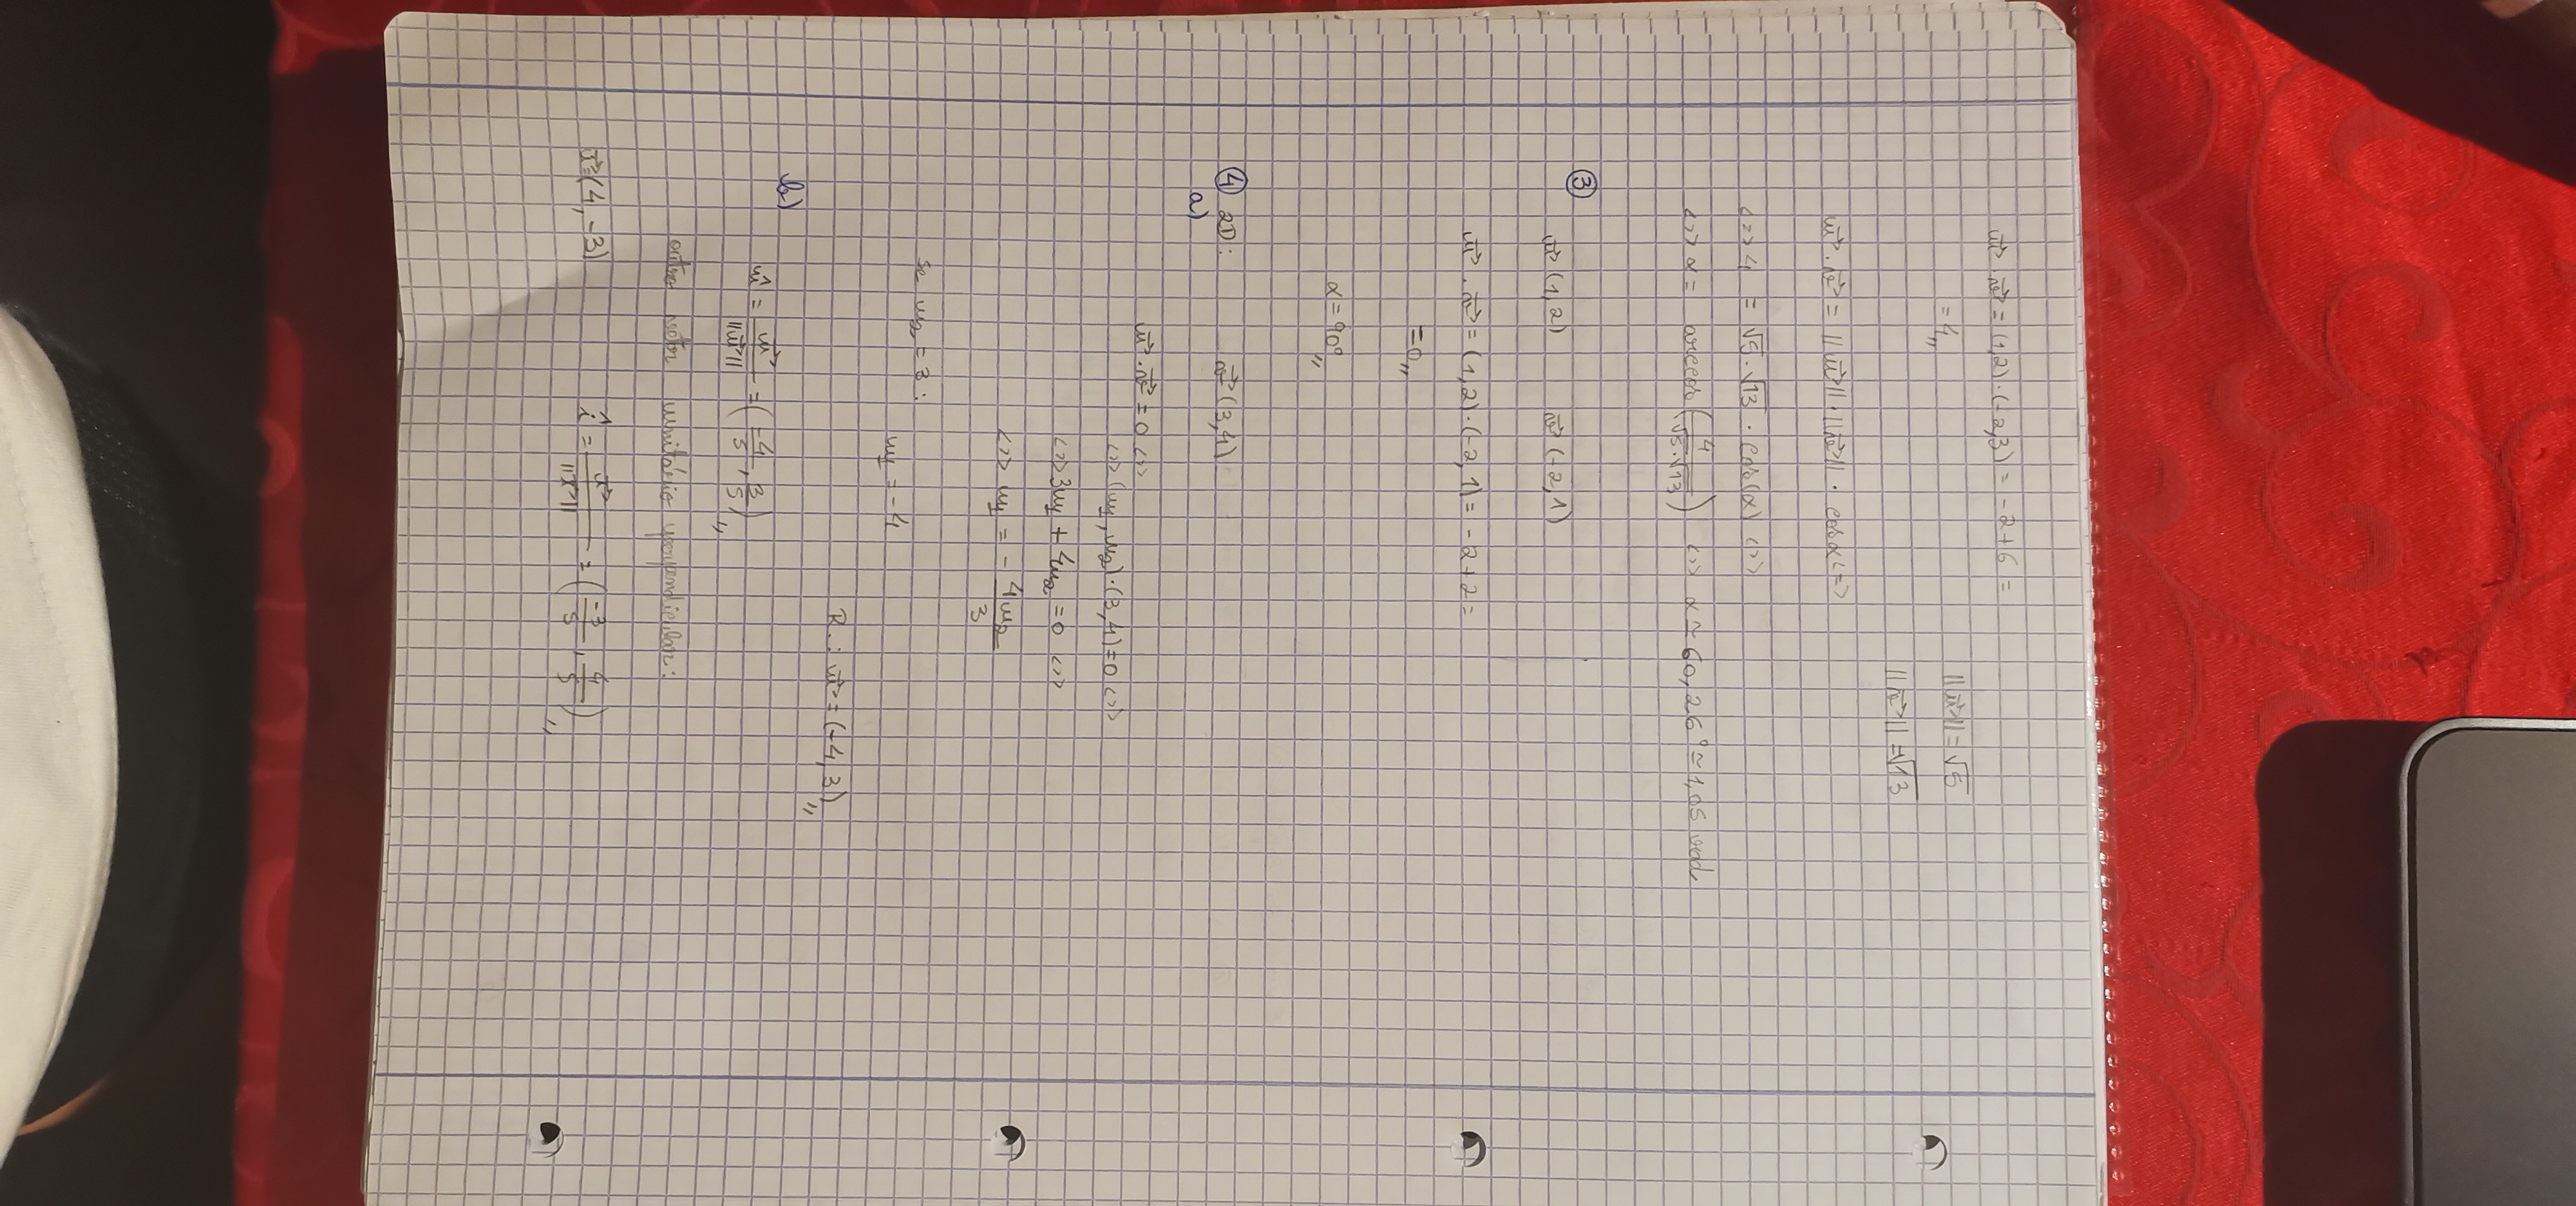 u⃗ . v⃗ = (1,2) . (-2,3) = -2+6 =
= 4,,
||u⃗|| = √5
||v⃗|| = √13
u⃗ . v⃗ = ||u⃗|| . ||v⃗|| . cos α <=>
<=> 4 = √5 . √13 . cos(α) <=>
<=> α = arccos (4/(√5 . √13)) <=> α ≃ 60,26° ≃ 1,05 rad
③
u⃗ (1,2) v⃗ (-2,1)
u⃗ . v⃗ = (1,2) . (-2,1) = -2+2 =
= 0,,
α = 90°,,
④ 2D: v⃗ (3,4)
a)
u⃗ . v⃗ = 0 <=>
<=> (u₁, u₂) . (3,4) = 0 <=>
<=> 3u₁ + 4u₂ = 0 <=>
<=> u₁ = - 4u₂/3
se u₂ = 3:
u₁ = -4
R.: u⃗ = (-4,3),,
b)
û = u⃗/||u⃗|| = (-4/5, 3/5),,
outro vetor unitário perpendicular:
r⃗ = (4,-3)
= (-3/5, 4/5),,